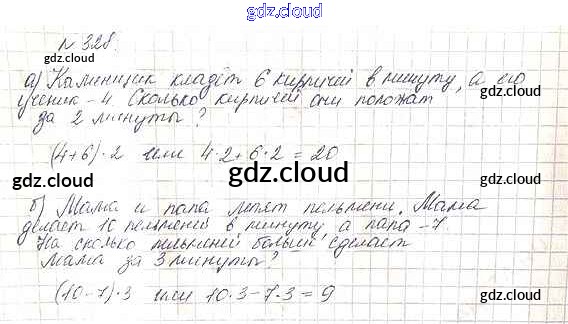 gdz.cloud
№ 328.
а) Каменщик кладёт 6 кирпичей в минуту, а его
ученик - 4. Сколько кирпичей они положат
за 2 минуты?
(4+6)·2 или 4·2+6·2=20
б) Мама и папа лепят пельмени. Мама
делает 10 пельменей в минуту, а папа -7.
На сколько пельменей больше сделает
мама за 3 минуты?
(10-7)·3 или 10·3-7·3=9
gdz.cloud
gdz.cloud
gdz.cloud
gdz.cloud
gdz.cloud
gdz.cloud
gdz.cloud
gdz.cloud
gdz.cloud
gdz.cloud